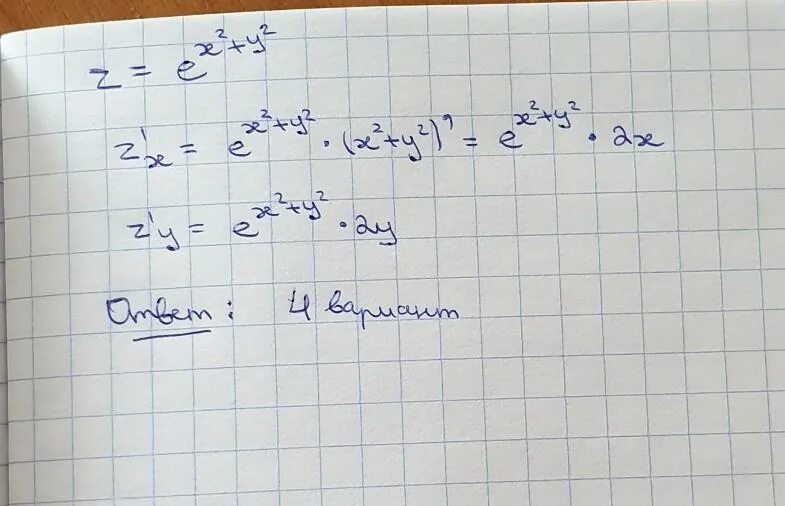 z = e^{x²+y²}
z'x = e^{x²+y²} · (x²+y²)' = e^{x²+y²} · 2x
z'y = e^{x²+y²} · 2y
Ответ: 4 вариант